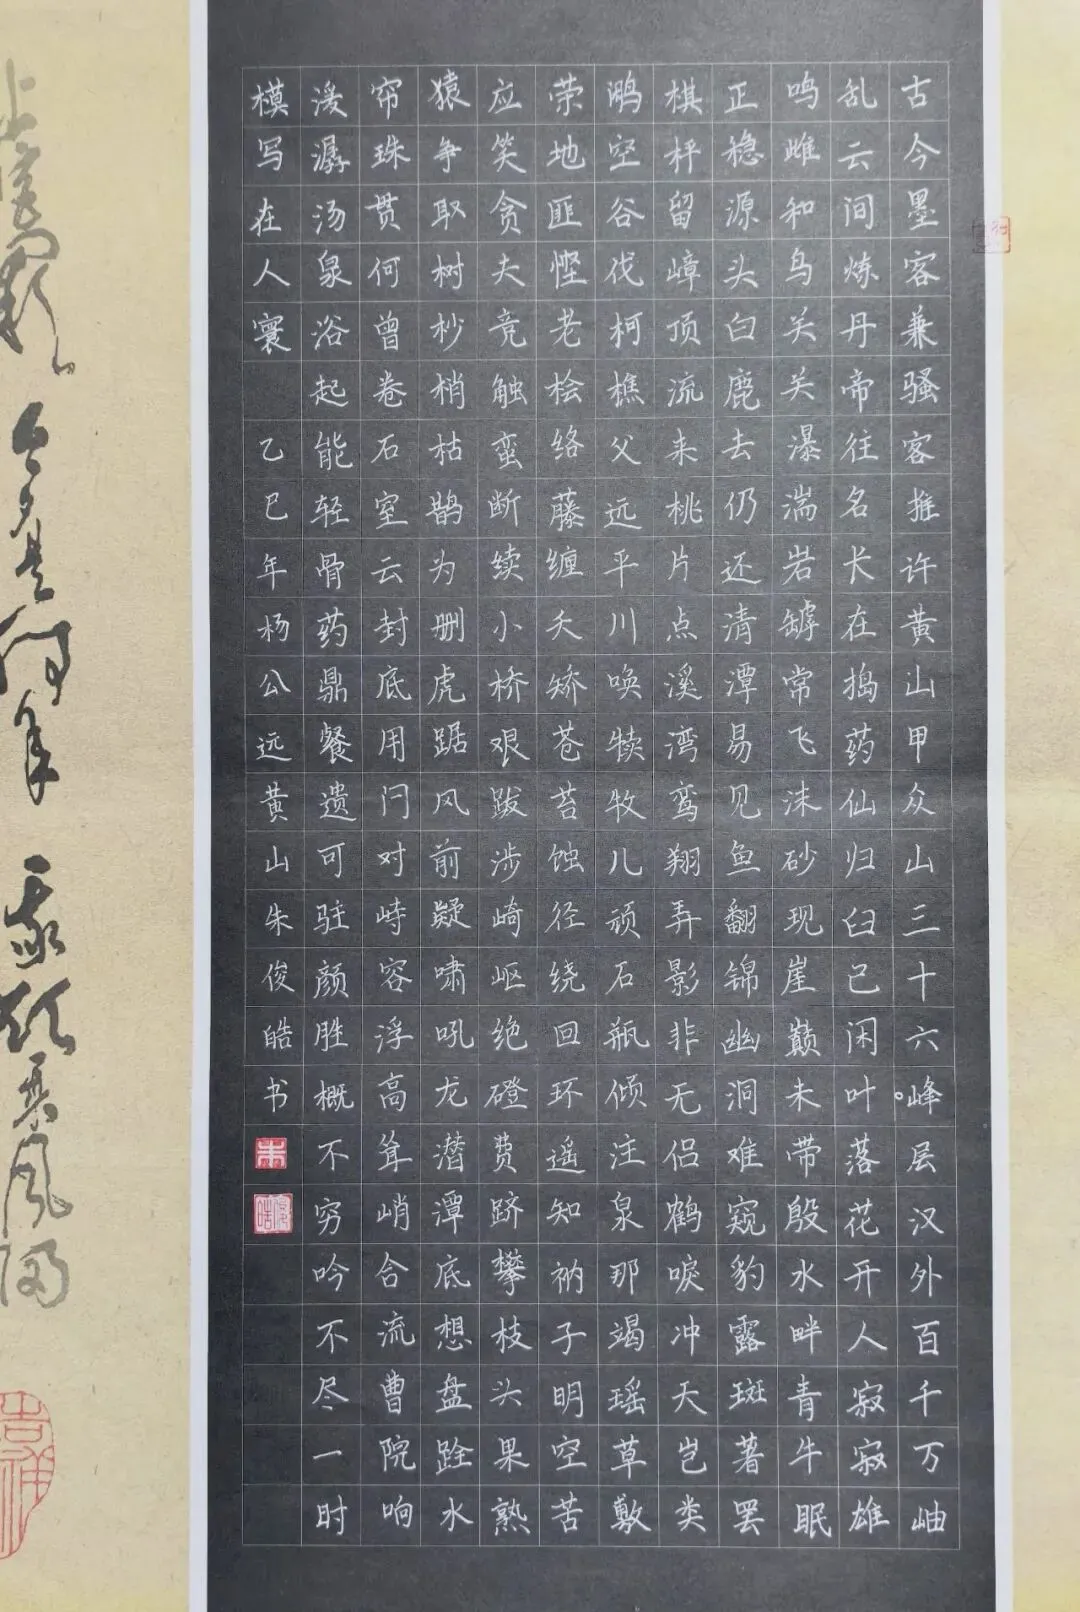 古今墨客兼骚客推许黄山甲众山三十六峰。层汉外百千万岫
乱云间炼丹帝往名长在捣药仙归臼已闲叶落花开人寂寂雄
鸣雌和鸟关关瀑湍岩罅常飞沫砂现崖巅未带殷水畔青牛眠
正稳源头白鹿去仍还清潭易见鱼翻锦幽洞难窥豹露斑著罢
棋枰留嶂顶流来桃片点溪湾鸾翔弄影非无侣鹤唳冲天岂类
鹇空谷伐柯樵父远平川唤犊牧儿顽石瓶倾注泉那竭瑶草敷
荣地匪悭老桧络藤缠夭矫苍苔蚀径绕回环遥知衲子明空苦
应笑贪夫竞触蛮断续小桥艰跋涉崎岖绝磴费跻攀枝头果熟
猿争取树杪梢枯鹊为删虎踞风前疑啸吼龙潜潭底想盘跧水
帘珠贯何曾卷石室云封底用闩对峙容浮高耸峭合流曹院响
潺汤泉浴起能轻骨药鼎餐遗可驻颜胜概不穷吟不尽一时
模写在人寰 乙巳年杨公远黄山朱俊皓书
朱
俊皓